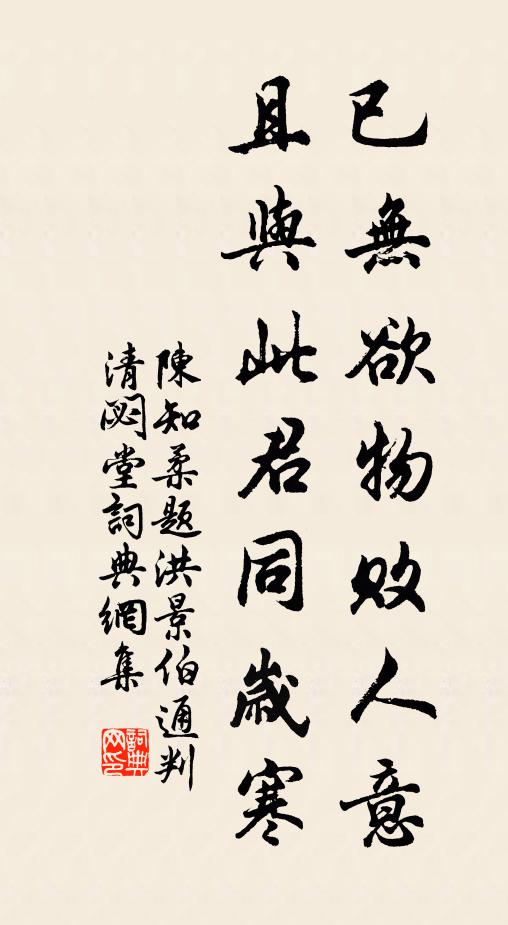 已無欲物敗人意
且與此君同歲寒
陳知柔題洪景伯通判
清閟堂詞典網集
詞典网印